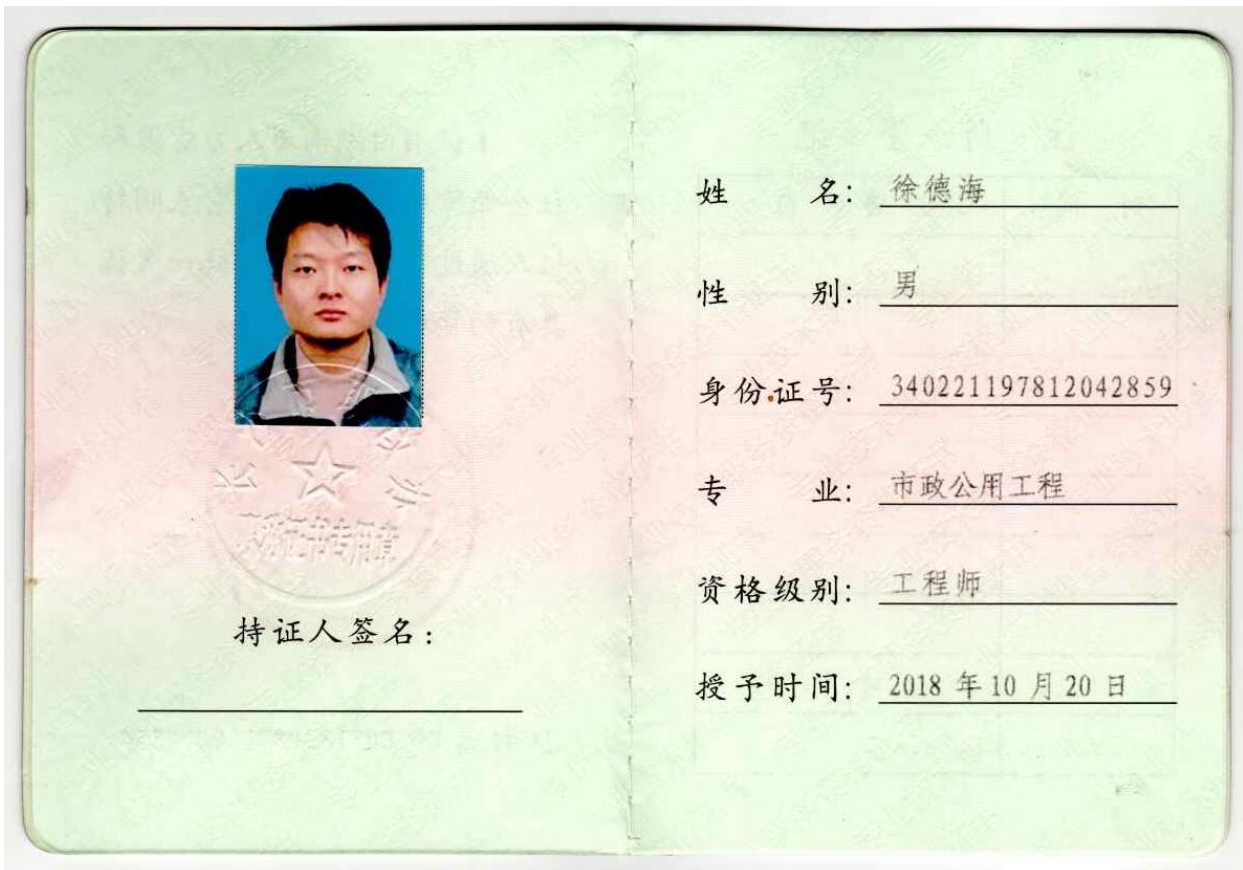 持证人签名：
姓 名： 徐德海
性 别： 男
身份证号： 340221197812042859
专 业： 市政公用工程
资格级别： 工程师
授予时间： 2018 年 10 月 20 日
证书专用章